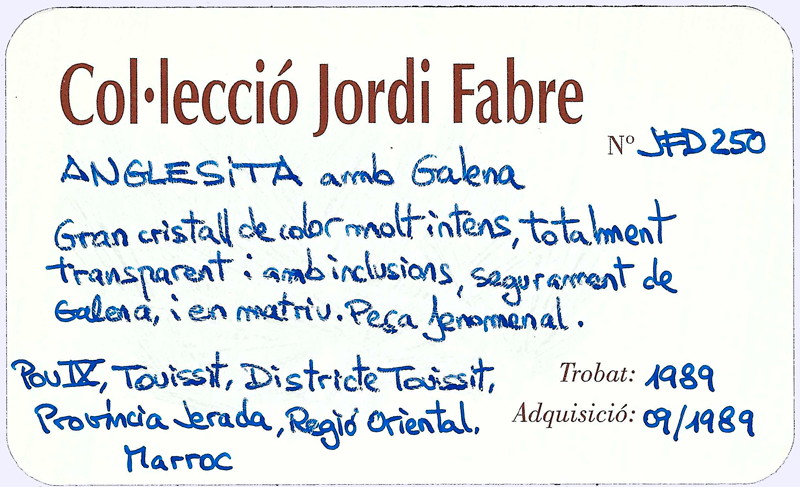 Col·lecció Jordi Fabre
Nº JFD250
ANGLESITA amb Galena
Gran cristall de color molt intens, totalment
transparent i amb inclusions, segurament de
Galena, i en matriu. Peça fenomenal.
Pou IX, Touissit, Districte Touissit,
Província Jerada, Regió Oriental.
Marroc
Trobat: 1989
Adquisició: 09/1989